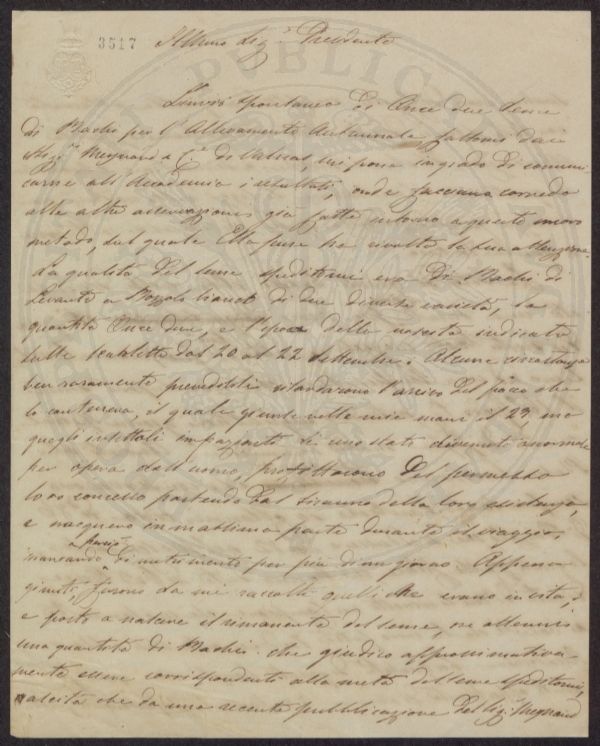 3517 Illmo Sig.r Presidente
L'invio spontaneo di Once due Seme
di Bachi per l'Allevamento Autunnale fattomi dai
Sigg.ri Meynard e C.i di Valreas, mi pone in grado di comuni
carne all'Accademia i resultati, onde facciano corredo
alle altre osservazioni già fatte intorno a questo nuovo
metodo, sul quale Ella pure ha rivolto la sua attenzione.
La qualità del Seme speditomi era di Bachi di
Levante a Bozzolo bianco di due diverse varietà, la
quantità Once due, e l'epoca della nascita indicata
sulle scatolette dal 20 al 22 Settembre. Alcune circostanze
ben raramente prevedibili ritardarono l'arrivo del pacco che
lo conteneva, il quale giunse nelle mie mani il 23, ma
quegli insettali impazienti di uno stato divenuto anormale
per opera dell'uomo, profittarono del permesso
loro concesso partendo dal tiranno della loro esistenza,
e nacquero in massima parte durante il viaggio,
mancando perciò di nutrimento per più di un giorno. Appena
giunti, furono da me raccolti quelli che erano in vita,
e posto a nascere il rimanente del seme, ne ottenni
una quantità di Bachi che giudico approssimativa-
mente essere corrispondente alla metà del seme speditomi,
nascita che da una recente pubblicazione dei Sigg. Meynard